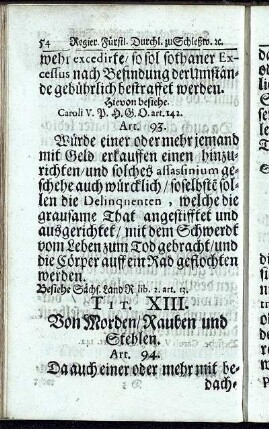 54 Regier. Fürstl. Durchl. zu Schleßw. ꝛc.
wehr excedirte/ so sol sothaner Ex-
cessus nach Befindung der Umstän-
de gebührlich bestraffet werden.
Hievon besihe.
Caroli V. P. H. G. O. art. 142.
Art. 93.
Würde einer oder mehr jemand
mit Geld erkauffen einen hinzu-
richten/ und solches assassinium ge-
schehe auch würcklich/ so selbste sol-
len die Delinquenten, welche die
grausame That angestifftet und
ausgerichtet/ mit dem Schwerdt
vom Leben zum Tod gebracht/ und
die Cörper auff ein Rad geflochten
werden.
Besihe Sächs. Land R. lib. 2. art. 13.
TIT. XIII.
Von Morden/ Rauben und
Stehlen.
Art. 94.
Da auch einer oder mehr mit be-
dach-